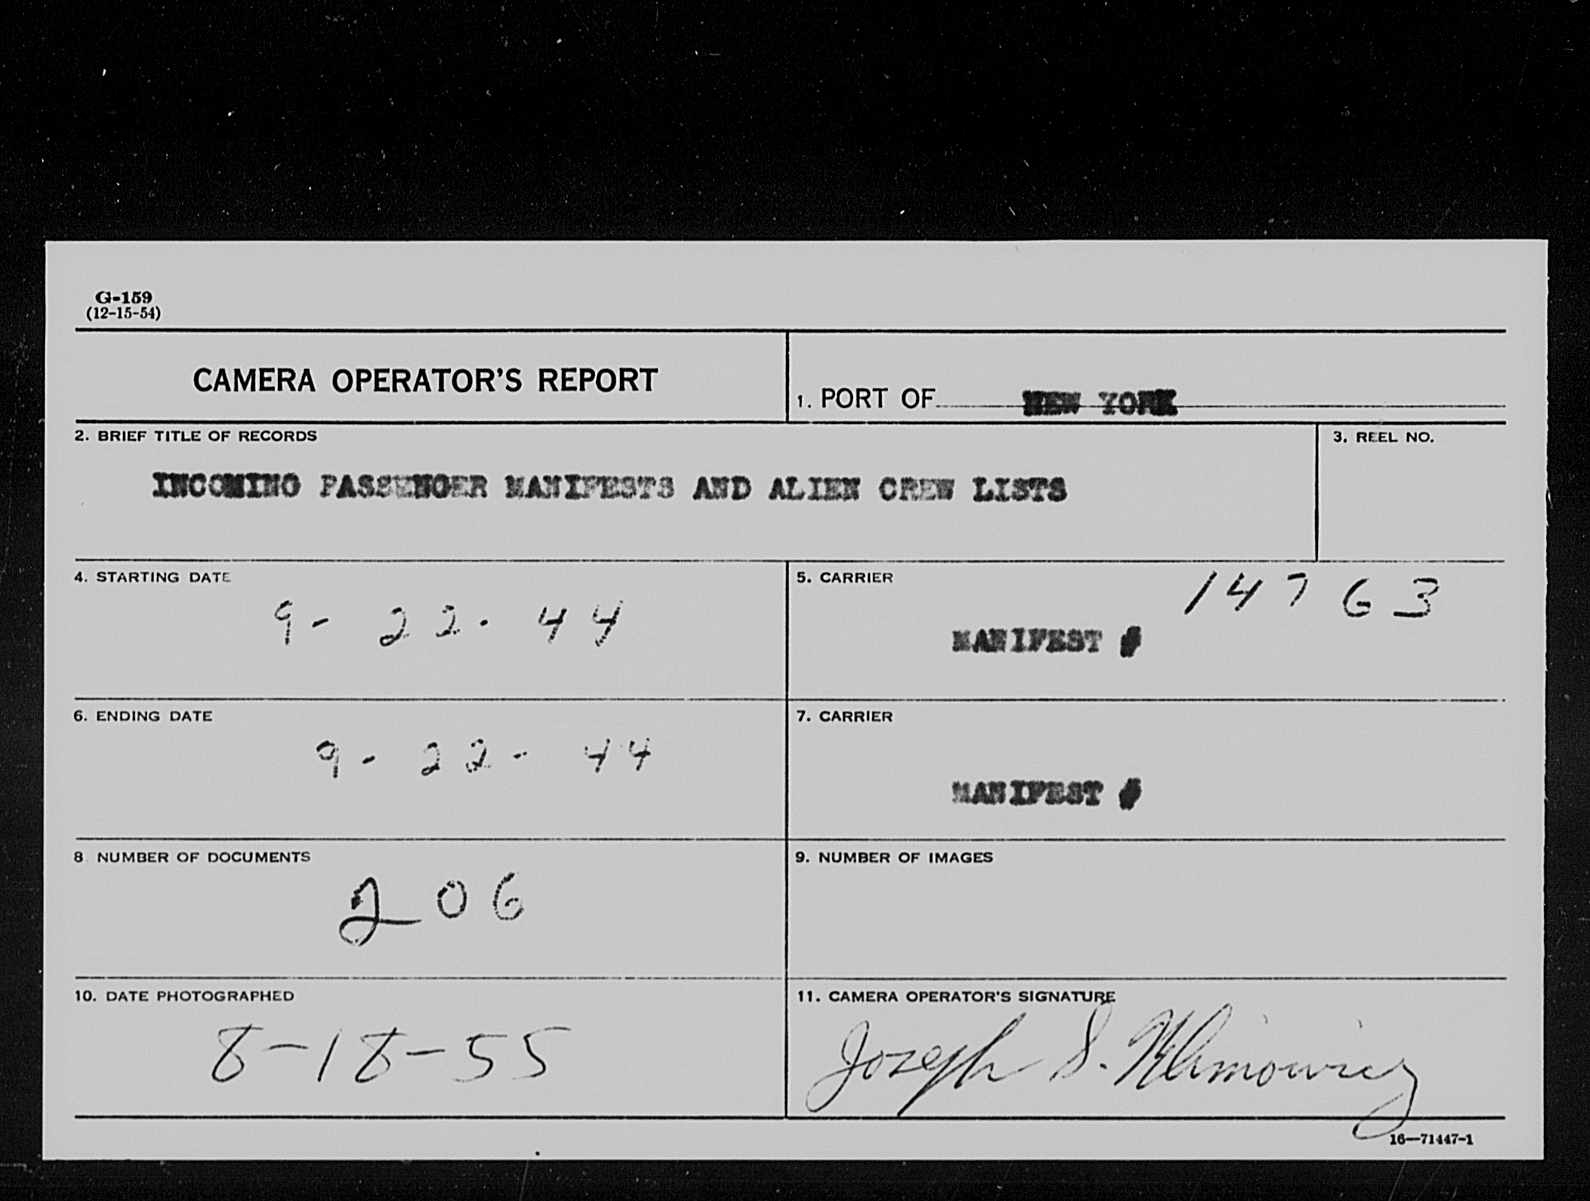 G-159
(12-15-54)
CAMERA OPERATOR'S REPORT
1. PORT OF NEW YORK
2. BRIEF TITLE OF RECORDS
3. REEL NO.
INCOMING PASSENGER MANIFESTS AND ALIEN CREW LISTS
4. STARTING DATE
9-22-44
5. CARRIER
14763
MANIFEST #
6. ENDING DATE
9-22-44
7. CARRIER
MANIFEST #
8 NUMBER OF DOCUMENTS
206
9. NUMBER OF IMAGES
10. DATE PHOTOGRAPHED
8-18-55
11. CAMERA OPERATOR'S SIGNATURE
Joseph S. Klimowicz
16—71447-1